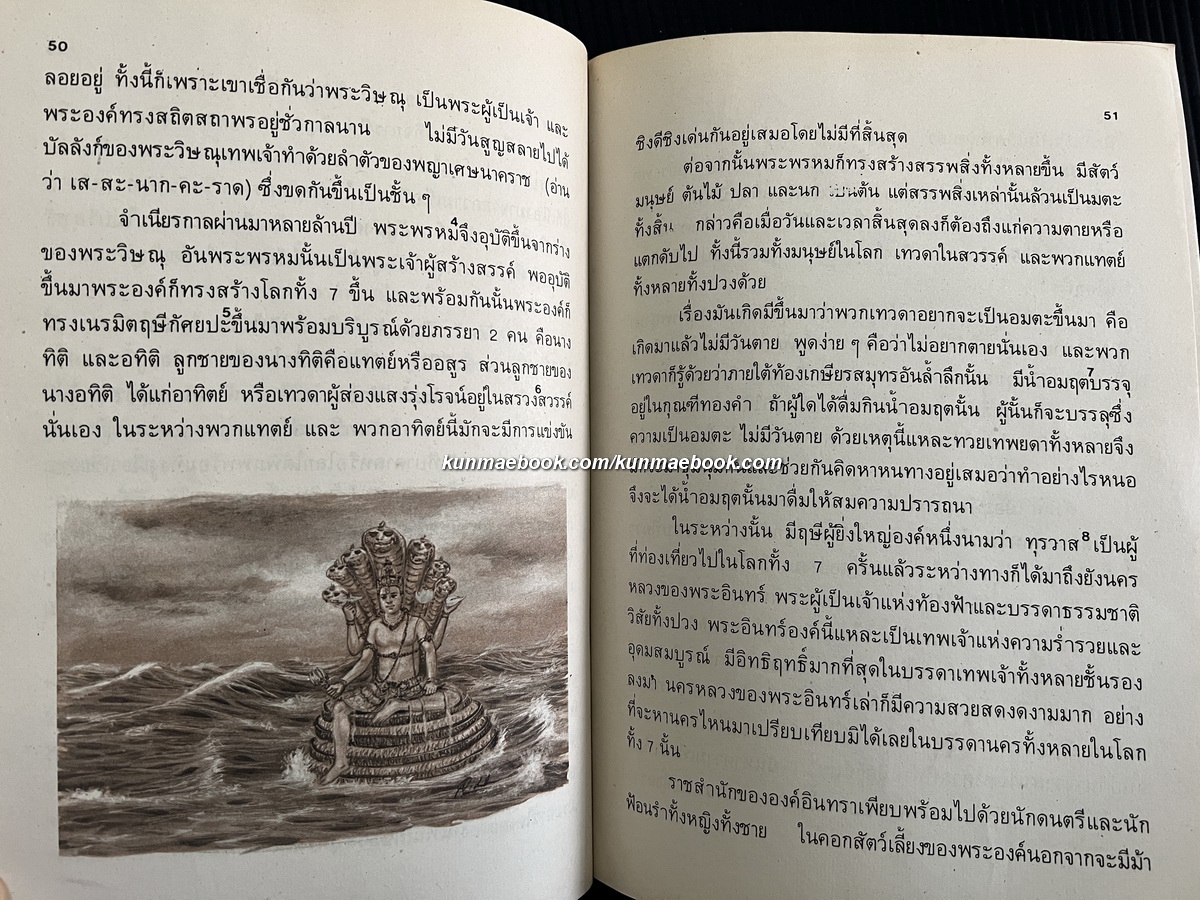 50
ลอยอยู่ ทั้งนี้ก็เพราะเขาเชื่อกันว่าพระวิษณุ เป็นพระผู้เป็นเจ้า และ
พระองค์ทรงสถิตสถาพรอยู่ชั่วกาลนาน ไม่มีวันสูญสลายไปได้
บัลลังก์ของพระวิษณุเทพเจ้าทำด้วยลำตัวของพญาเศษนาคราช (อ่าน
ว่า เส-สะ-นาก-คะ-ราด) ซึ่งขดกันขึ้นเป็นชั้น ๆ
จำเนียรกาลผ่านมาหลายล้านปี พระพรหม4จึงอุบัติขึ้นจากร่าง
ของพระวิษณุ อันพระพรหมนั้นเป็นพระเจ้าผู้สร้างสรรค์ พออุบัติ
ขึ้นมาพระองค์ก็ทรงสร้างโลกทั้ง 7 ขึ้น และพร้อมกันนั้นพระองค์ก็
ทรงเนรมิตฤษีกัศยปะ5ขึ้นมาพร้อมบริบูรณ์ด้วยภรรยา 2 คน คือนาง
ทิติ และอทิติ ลูกชายของนางทิติคือแทตย์หรืออสูร ส่วนลูกชายของ
นางอทิติ ได้แก่อาทิตย์ หรือเทวดาผู้ส่องแสงรุ่งโรจน์อยู่ในสรวง6สวรรค์
นั่นเอง ในระหว่างพวกแทตย์ และ พวกอาทิตย์นี้มักจะมีการแข่งขัน
kunmaebook.com/kunmaebook.com
51
ชิงดีชิงเด่นกันอยู่เสมอโดยไม่มีที่สิ้นสุด
ต่อจากนั้นพระพรหมก็ทรงสร้างสรรพสิ่งทั้งหลายขึ้น มีสัตว์
มนุษย์ ต้นไม้ ปลา และนก เป็นต้น แต่สรรพสิ่งเหล่านั้นล้วนเป็นมตะ
ทั้งสิ้น กล่าวคือเมื่อวันและเวลาสิ้นสุดลงก็ต้องถึงแก่ความตายหรือ
แตกดับไป ทั้งนี้รวมทั้งมนุษย์ในโลก เทวดาในสวรรค์ และพวกแทตย์
ทั้งหลายทั้งปวงด้วย
เรื่องมันเกิดมีขึ้นมาว่าพวกเทวดาอยากจะเป็นอมตะขึ้นมา คือ
เกิดมาแล้วไม่มีวันตาย พูดง่าย ๆ คือว่าไม่อยากตายนั่นเอง และพวก
เทวดาก็รู้ด้วยว่าภายใต้ท้องเกษียรสมุทรอันล้ำลึกนั้น มีน้ำอมฤต7บรรจุ
อยู่ในกุณฑีทองคำ ถ้าผู้ใดได้ดื่มกินน้ำอมฤตนั้น ผู้นั้นก็จะบรรลุซึ่ง
ความเป็นอมตะ ไม่มีวันตาย ด้วยเหตุนี้แหละทวยเทพยดาทั้งหลายจึง
และช่วยกันคิดหาหนทางอยู่เสมอว่าทำอย่างไรหนอ
จึงจะได้น้ำอมฤตนั้นมาดื่มให้สมความปรารถนา
ในระหว่างนั้น มีฤษีผู้ยิ่งใหญ่องค์หนึ่งนามว่า ทุรวาส8 เป็นผู้
ที่ท่องเที่ยวไปในโลกทั้ง 7 ครั้นแล้วระหว่างทางก็ได้มาถึงยังนคร
หลวงของพระอินทร์ พระผู้เป็นเจ้าแห่งท้องฟ้าและบรรดาธรรมชาติ
วิสัยทั้งปวง พระอินทร์องค์นี้แหละเป็นเทพเจ้าแห่งความร่ำรวยและ
อุดมสมบูรณ์ มีอิทธิฤทธิ์มากที่สุดในบรรดาเทพเจ้าทั้งหลายชั้นรอง
ลงมา นครหลวงของพระอินทร์เล่าก็มีความสวยสดงดงามมาก อย่าง
ที่จะหานครไหนมาเปรียบเทียบมิได้เลยในบรรดานครทั้งหลายในโลก
ทั้ง 7 นั้น
ราชสำนักขององค์อินทราเพียบพร้อมไปด้วยนักดนตรีและนัก
ฟ้อนรำทั้งหญิงทั้งชาย ในคอกสัตว์เลี้ยงของพระองค์นอกจากจะมีม้า